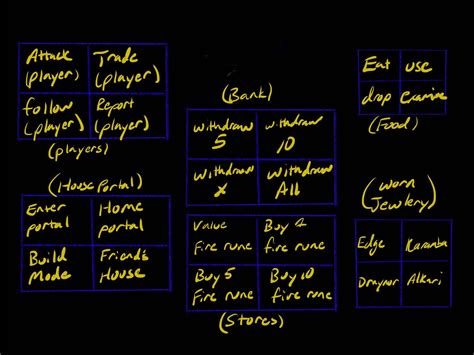 Attack
(player)
Trade
(player)
follow
(player)
Report
(player)
(players)
(House Portal)
Enter
portal
Home
portal
Build
Mode
Friend's
House
(Bank)
withdraw
5
withdraw
10
withdraw
x
withdraw
All
Value
fire rune
Buy 1
fire rune
Buy 5
Fire rune
Buy 10
fire rune
(Stores)
Eat
use
drop
examine
(Food)
(worn
Jewlery)
Edge
Karamba
Draynor
Alkari